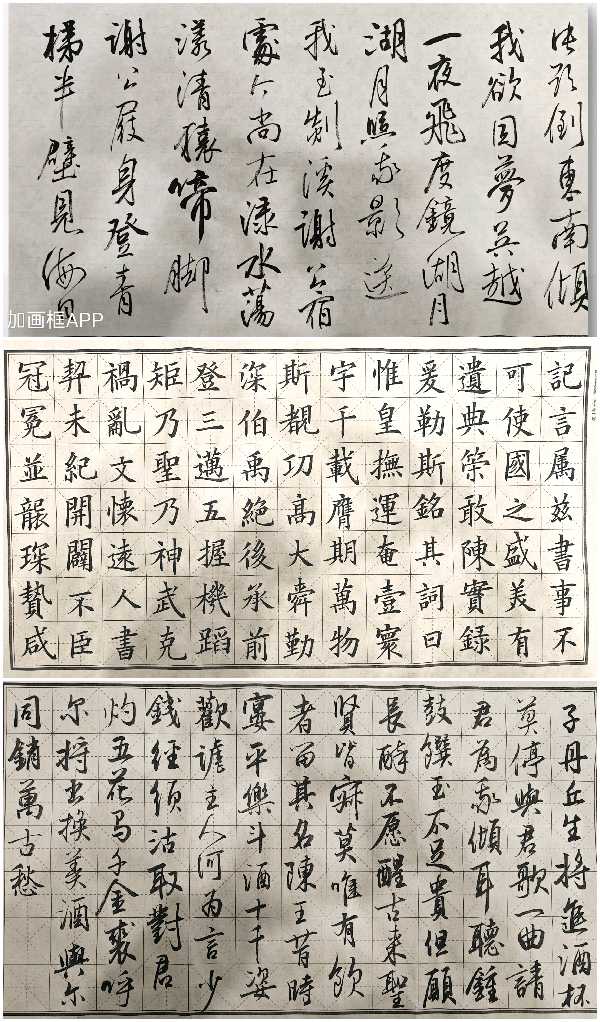 此欲倒東南傾
我欲因夢吳越
一夜飛度鏡湖月
湖月照我影送
我至剡溪謝公宿
處今尚在渌水蕩
漾清猿啼脚
謝公屐身登青
梯半壁見海日
加画框APP
記言属兹書事不
可使國之盛美有
遺典策敢陳實録
爰勒斯銘其詞曰
惟皇撫運奄壹寰
宇千載膺期萬物
斯覩功高大舜勤
深伯禹絕後承前
登三邁五握機蹈
矩乃聖乃神武克
禍亂文懷遠人書
契未紀開闢不臣
冠冕並襲琛贄咸
子丹丘生将進酒杯
莫停與君歌一曲請
君為我傾耳聽鍾
鼓饌玉不足貴但願
長醉不愿醒古来聖
賢皆寂莫唯有飲
者留其名陳王昔時
宴平樂斗酒十千恣
歡謔主人何為言少
錢徑須沽取對君
灼五花马千金裘呼
尔将出换美酒與尔
同銷萬古愁